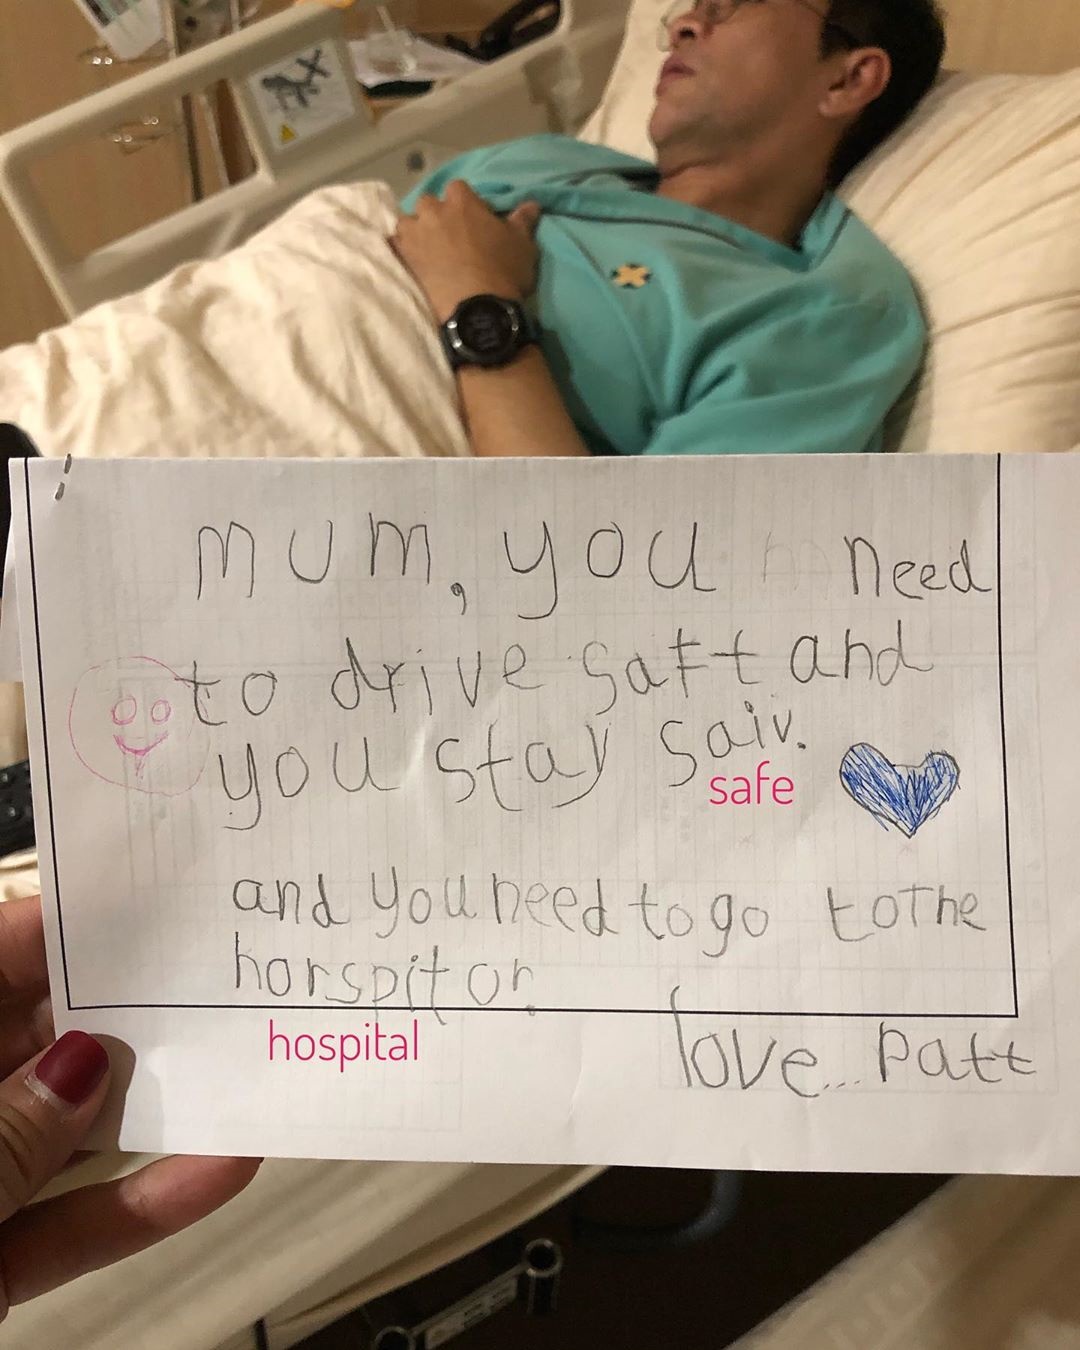 mum, you need
to drive saft and
you stay saiv.
safe
and you need to go to The
horspitor.
hospital
love... Patt